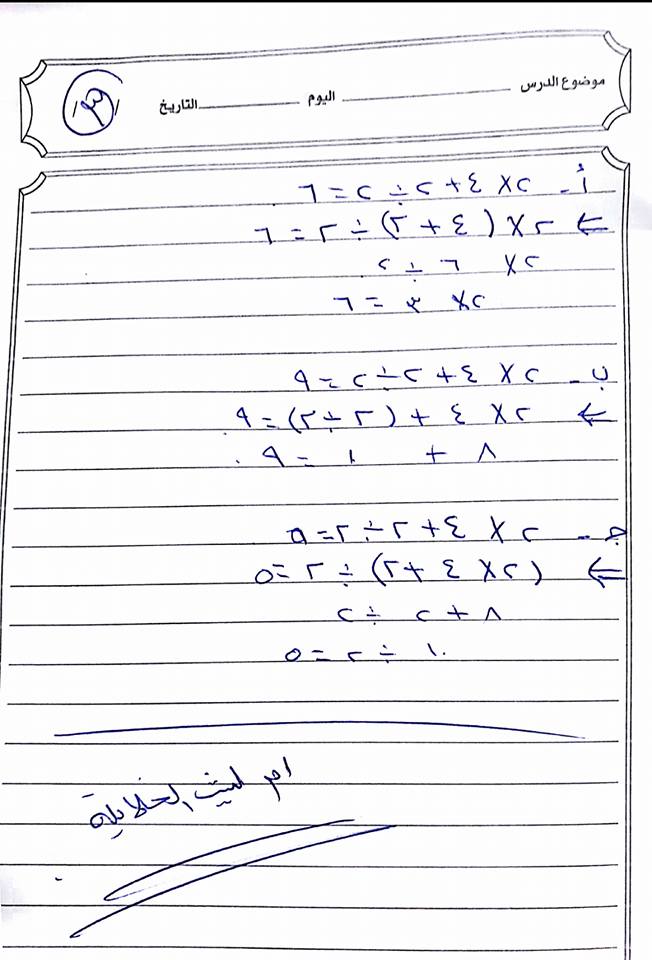 موضوع الدرس ـــــــــ اليوم ـــــــــ التاريخ
/٣/
أ - ٢ × ٤ + ٢ ÷ ٢ = ٦
⇐ ٢ × (٤ + ٢) ÷ ٢ = ٦
٢ × ٦ ÷ ٢
٢ × ٣ = ٦
ب - ٢ × ٤ + ٢ ÷ ٢ = ٩
⇐ ٢ × ٤ + (٢ ÷ ٢) = ٩
٨ + ١ = ٩
جـ - ٢ × ٤ + ٢ ÷ ٢ = ٥
⇐ (٢ × ٤ + ٢) ÷ ٢ = ٥
٨ + ٢ ÷ ٢
١٠ ÷ ٢ = ٥
ام ليث الخلايلة